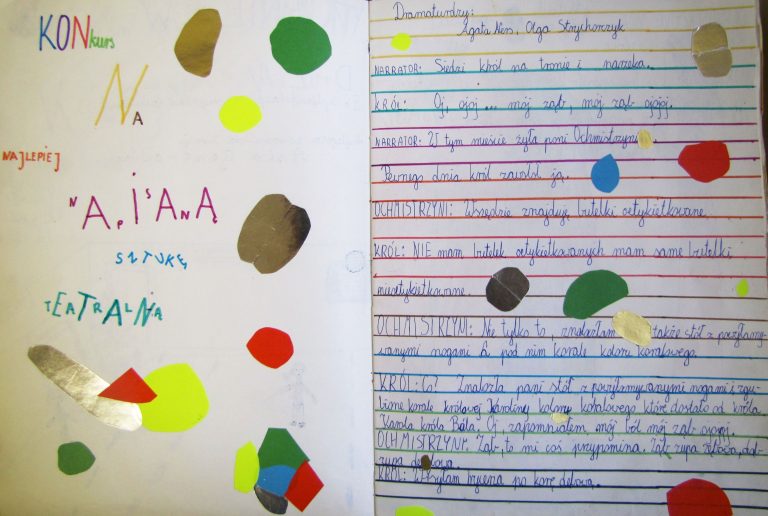 KONkurs
NA
NAJLEPIEJ
NAPISANĄ
SZTUKĘ
TEATRALNĄ
Dramaturdzy:
Agata Olga Strychorczyk
NARRATOR: Siedzi król na tronie i narzeka.
KRÓL: Oj, ojoj ... mój ząb, mój ząb ojojoj.
NARRATOR: W tym mieście żyła pani Ochmistrzyni
Pewnego dnia król zawołał ją.
OCHMISTRZYNI: Wszędzie znajduję butelki oetykietkowane.
KRÓL: NIE mam butelek oetykietkowanych mam same butelki
nieoetykietkowane.
OCHMISTRZYNI: Nie tylko to, znalazłam także stół z
nogami a pod nim korale koloru koralowego.
KRÓL: Co? Znalazła pani stół z nogami i zgu-
bione korale królowej Karoliny koloru koralowego które dostała od króla
Karola króla Bala. Oj, zapomniałem mój ból mój ząb ojojoj.
OCHMISTRZYNI: Ząb, to mi coś przypomina. Ząb, zupa zębowa, dąb,
zupa dębowa.
KRÓL: Wysyłam po korę dębową.